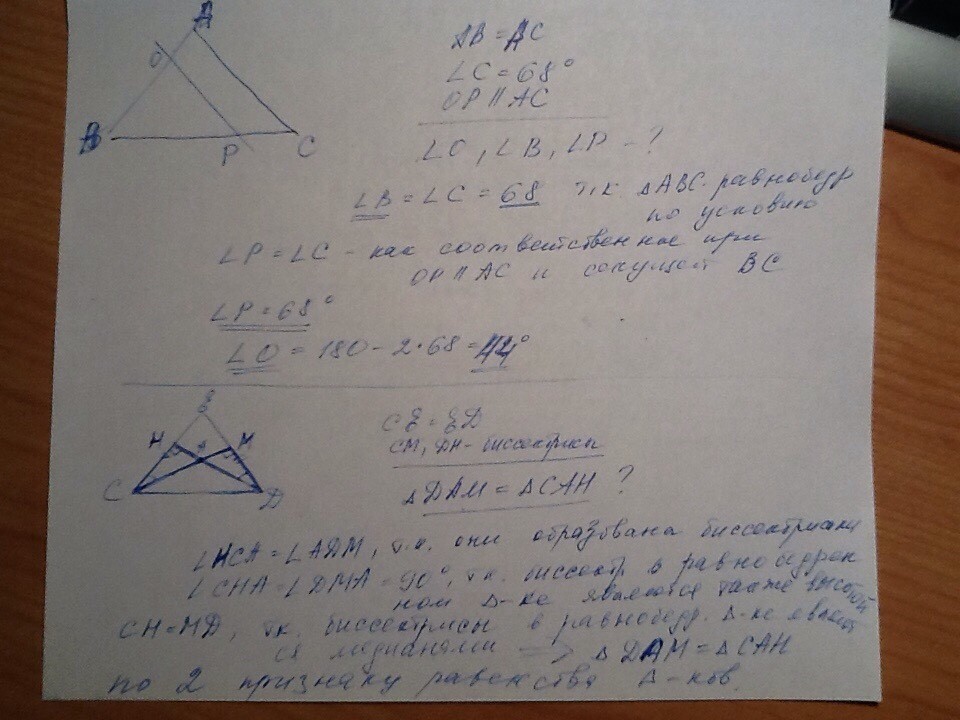 A
O
B
P
C
AB = AC
∠C = 68°
OP || AC
∠O, ∠B, ∠P - ?
∠B = ∠C = 68 т.к. △ABC равнобедр
по условию
∠P = ∠C - как соответственное при
OP || AC и секущей BC
∠P = 68°
∠O = 180 - 2·68 = 44°
E
H
M
A
C
D
CE = ED
CM, DH - биссектрисы
△DAM = △CAH ?
∠HCA = ∠ADM, т.к. они образована биссектрисами
∠CHA = ∠DMA = 90°, т.к. биссектр в равнобедрен
ном △-ке является также высотой
CH = MD, т.к. биссектрисы в равнобедр. △-ке являют
ся медианами => △DAM = △CAH
по 2 признаку равенства △-ков.